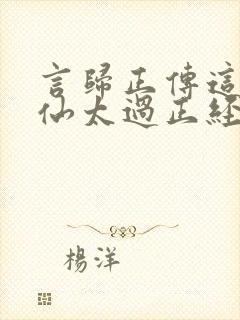 言歸正傳這
仙太過正經
楊洋